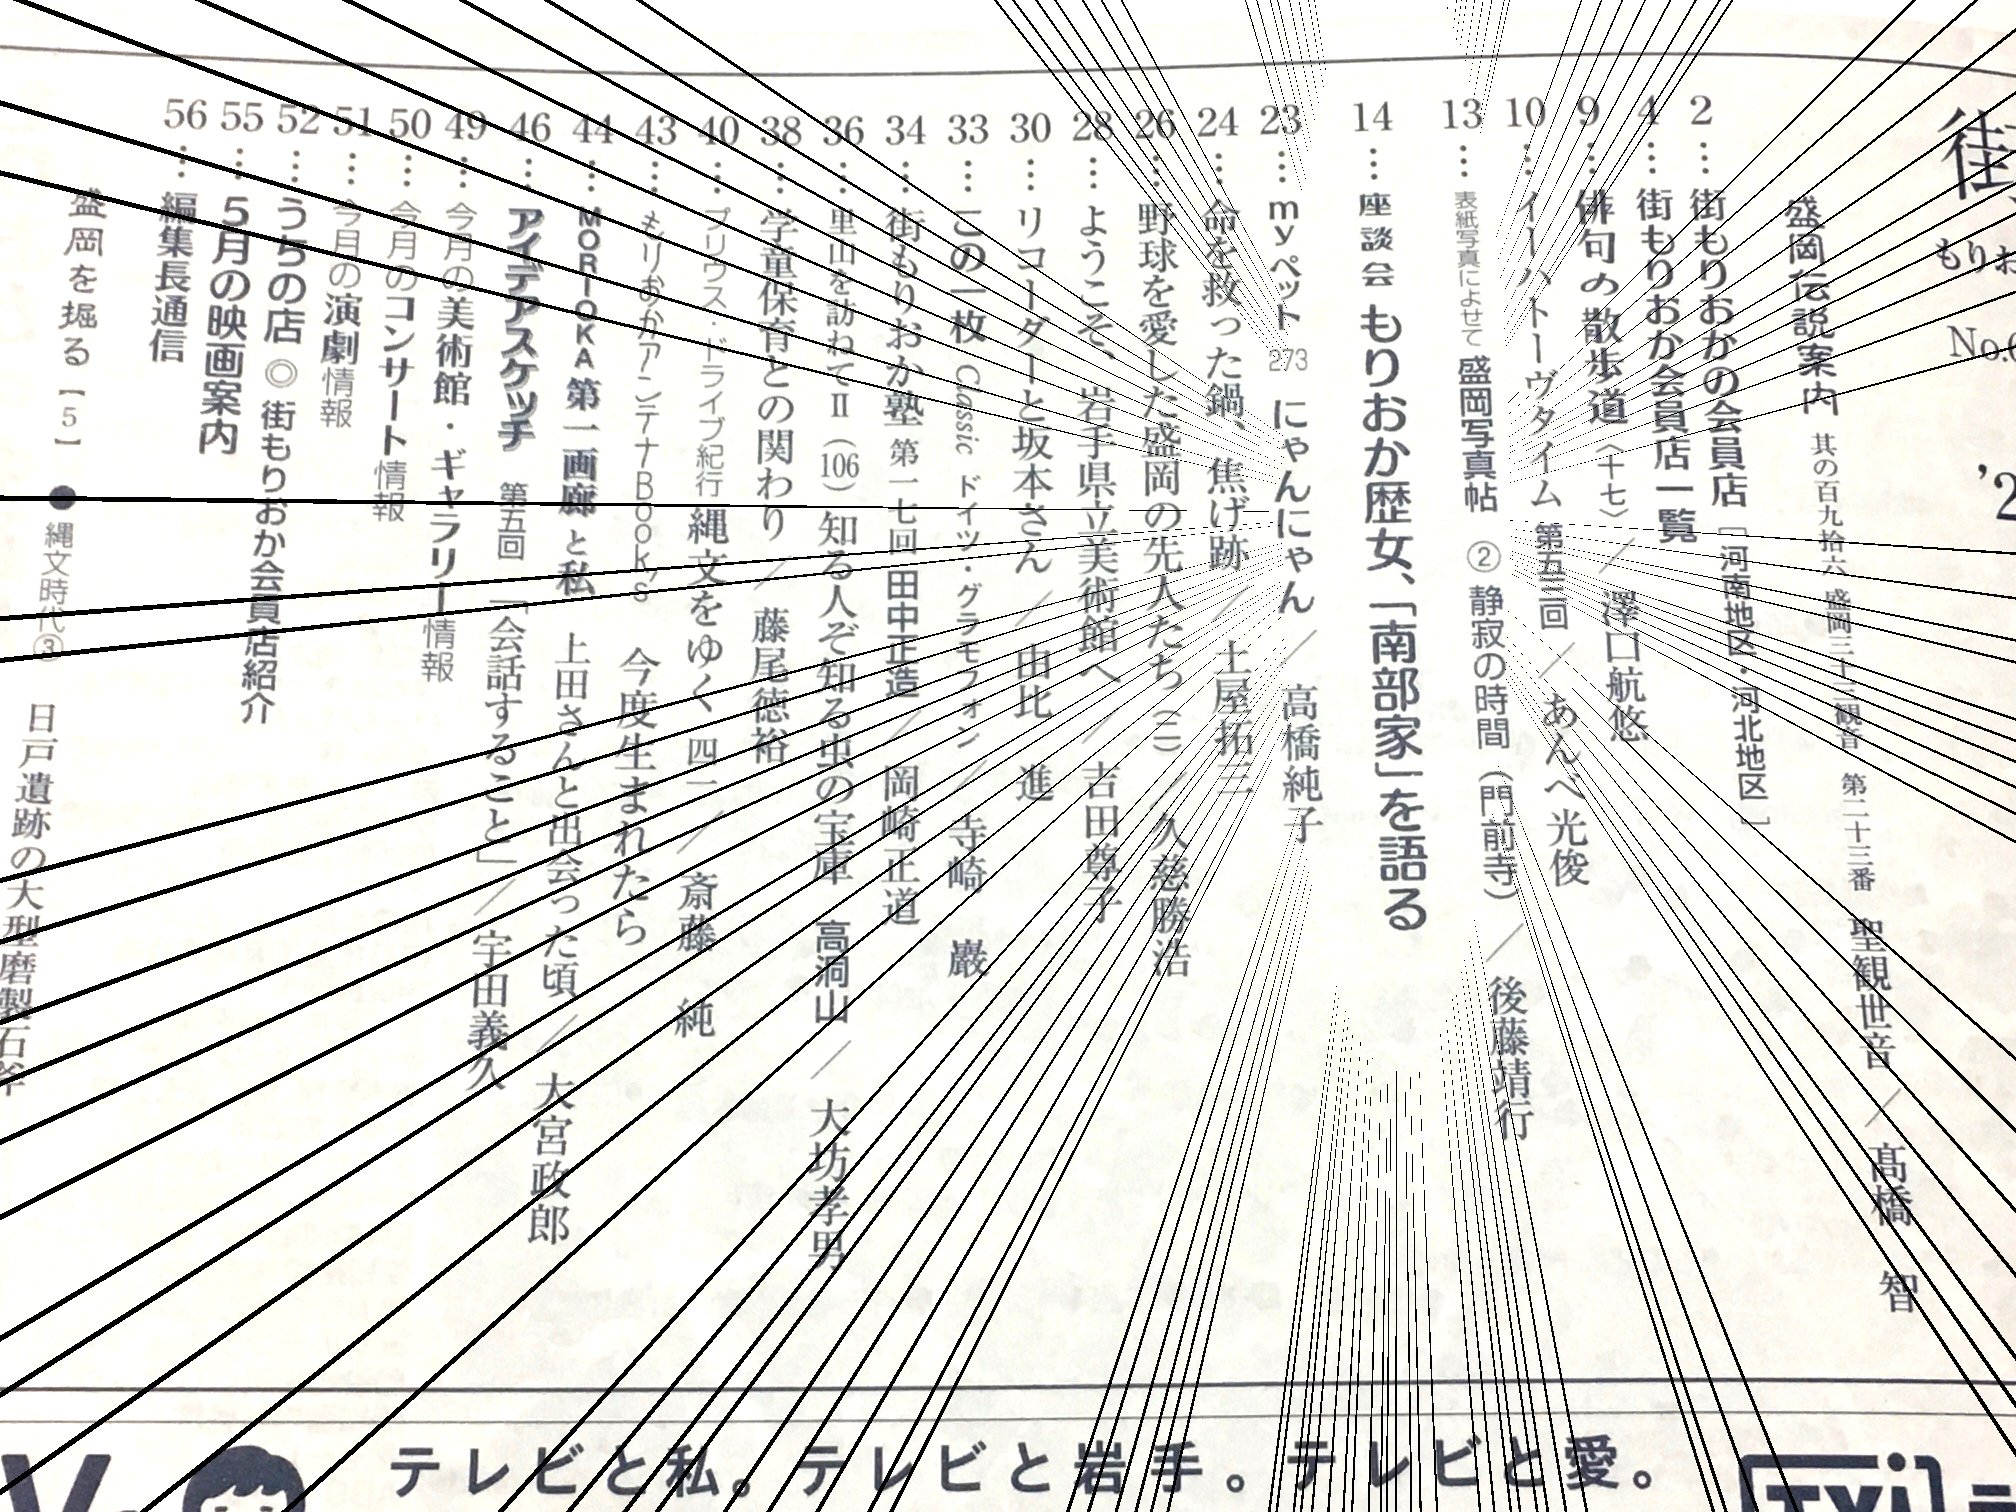 もりお
No.
’2
盛岡伝説案内 其の百九拾六 盛岡三十三観音 第二十三番 聖観世音 ／ 髙橋 智
2…街もりおかの会員店［河南地区・河北地区］
4…街もりおか会員店一覧
9…俳句の散歩道（十七）／ 澤口航悠
10…イーハトーヴタイム 第五三回 ／ あんべ光俊
13…表紙写真によせて 盛岡写真帖 ② 静寂の時間（門前寺）／ 後藤靖行
14…座談会 もりおか歴女、「南部家」を語る
23…myペット 273 にゃんにゃん ／ 高橋純子
24…命を救った鍋、焦げ跡 ／ 土屋拓三
26…野球を愛した盛岡の先人たち（二）／ 久慈勝浩
28…ようこそ、岩手県立美術館へ ／ 吉田尊子
30…リコーダーと坂本さん ／ 由比 進
33…この一枚 Classic ドイツ・グラモフォン ／ 寺崎 巖
34…街もりおか塾 第一七回 田中正造 ／ 岡崎正道
36…里山を訪ねてⅡ（106）知る人ぞ知る虫の宝庫 高洞山 ／ 大坊孝男
38…学童保育との関わり ／ 藤尾徳裕
40…プリウス・ドライブ紀行 縄文をゆく 四一 ／ 斎藤 純
43…もりおかアンテナBook's 今度生まれたら
44…MORIOKA第一画廊と私 上田さんと出会った頃 ／ 大宮政郎
46…アイデアスケッチ 第五回 「会話すること」／ 宇田義久
49…今月の美術館・ギャラリー情報
50…今月のコンサート情報
51…今月の演劇情報
52…うちの店 ◎ 街もりおか会員店紹介
55…5月の映画案内
56…編集長通信
盛岡を掘る［5］ ● 縄文時代③ 日戸遺跡の大型磨製石斧
テレビと私。テレビと岩手。テレビと愛。